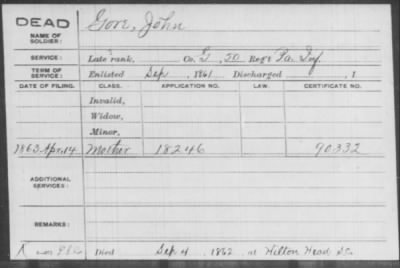 DEAD
NAME OF SOLDIER: Gore, John
SERVICE: Late rank, Co. G, 50 Reg't Pa. Inf
TERM OF SERVICE: Enlisted Sep, 1861 Discharged , 1
DATE OF FILING. CLASS. APPLICATION NO. LAW. CERTIFICATE NO.
Invalid,
Widow,
Minor,
1863 Apr. 14 Mother 18246 90332
ADDITIONAL SERVICES:
REMARKS:
Died Sep 4, 1862 at Hilton Head S.C.